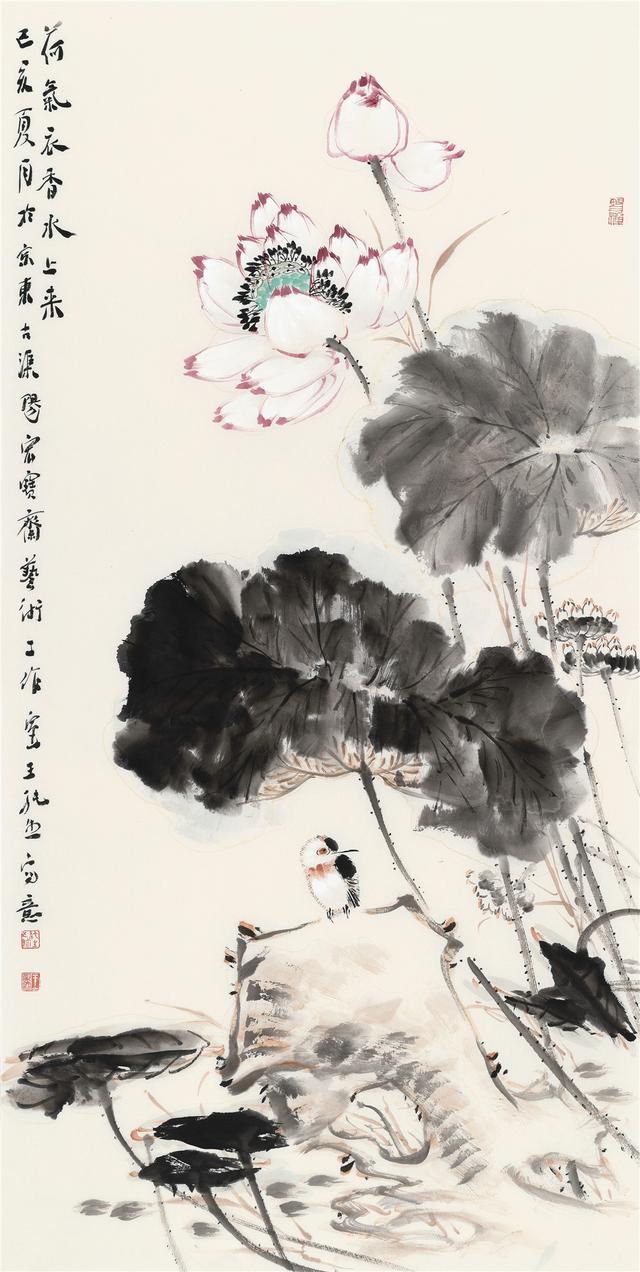 荷氣衣香水上来
己亥夏月於京東古渠陽寶齋藝術工作室王写意